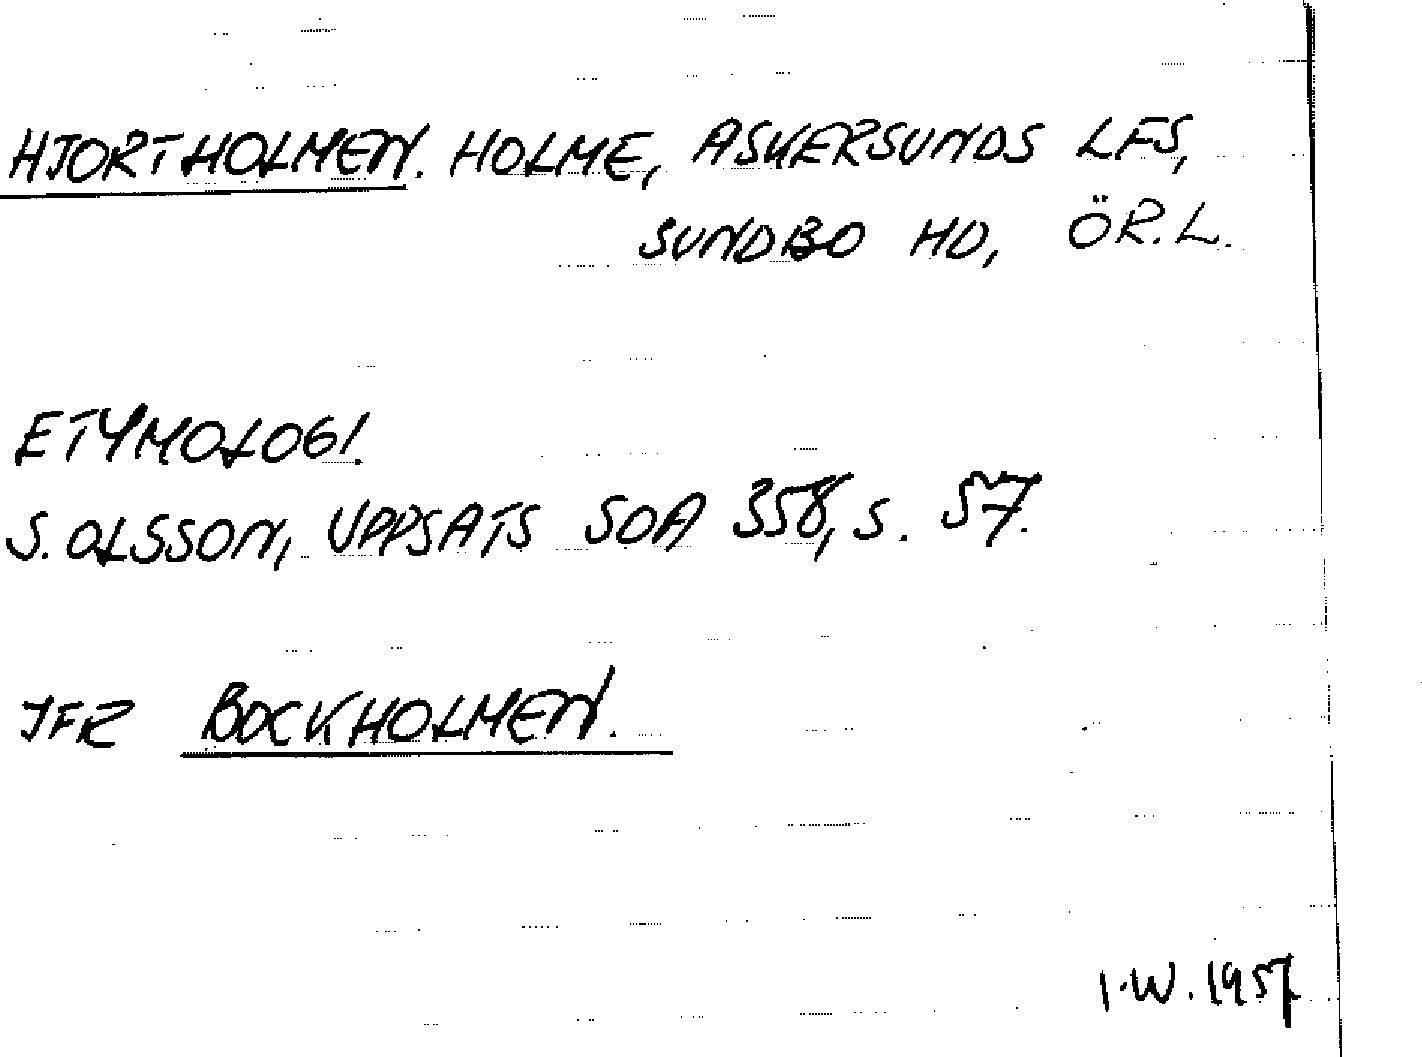 HJORTHOLMEN. HOLME, ASKERSUNDS LFS,
SUNDBO HD, ÖR.L.
ETYMOLOGI.
S. OLSSON, UPPSATS SOA 358, S. 57.
JFR BOCKHOLMEN.
I.W. 1957